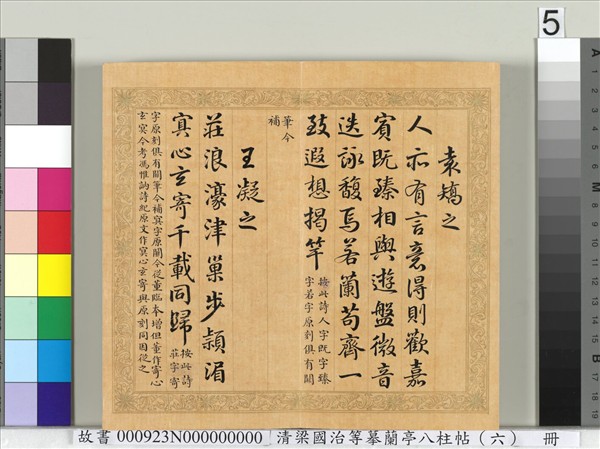 袁矯之
人亦有言意得則歡嘉
賓既臻相與遊盤微音
迭詠馥焉若蘭苟齊一
致遐想揭竿按此詩人字既字臻
字若字原刻俱有闕
筆今
補
王凝之
莊浪濠津巢步潁湄
寘心玄寄千載同歸按此詩
莊字寄
字原刻俱有闕筆今補寘字原闕今從董臨本增但董作寄心
玄寘今考馮惟訥詩紀原文作寘心玄寄與原刻同因從之
5
故書 000923N000000000 清梁國治等摹蘭亭八柱帖(六) 冊